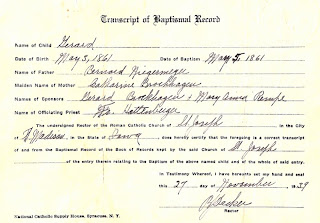 Transcript of Baptismal Record
Name of Child Gerard
Date of Birth May 3, 1861 Date of Baptism May 5, 1861
Name of Father Bernard
Maiden Name of Mother Catharine Brockhagen
Names of Sponsors Gerard Brockhagen + Mary Anna Rempe
Name of Officiating Priest
The undersigned Rector of the Roman Catholic Church of St Joseph in the City
of Ft Madison, in the State of Iowa does hereby certify that the foregoing is a correct transcript
of and from the Baptismal Record of the Book of Records kept by the said Church of St. Joseph
of the entry therein relating to the Baptism of the above named child and of the whole of said entry.
In Testimony Whereof, I have hereunto set my hand and seal
this 27 day of November 1939
Rector
National Catholic Supply House, Syracuse, N. Y.